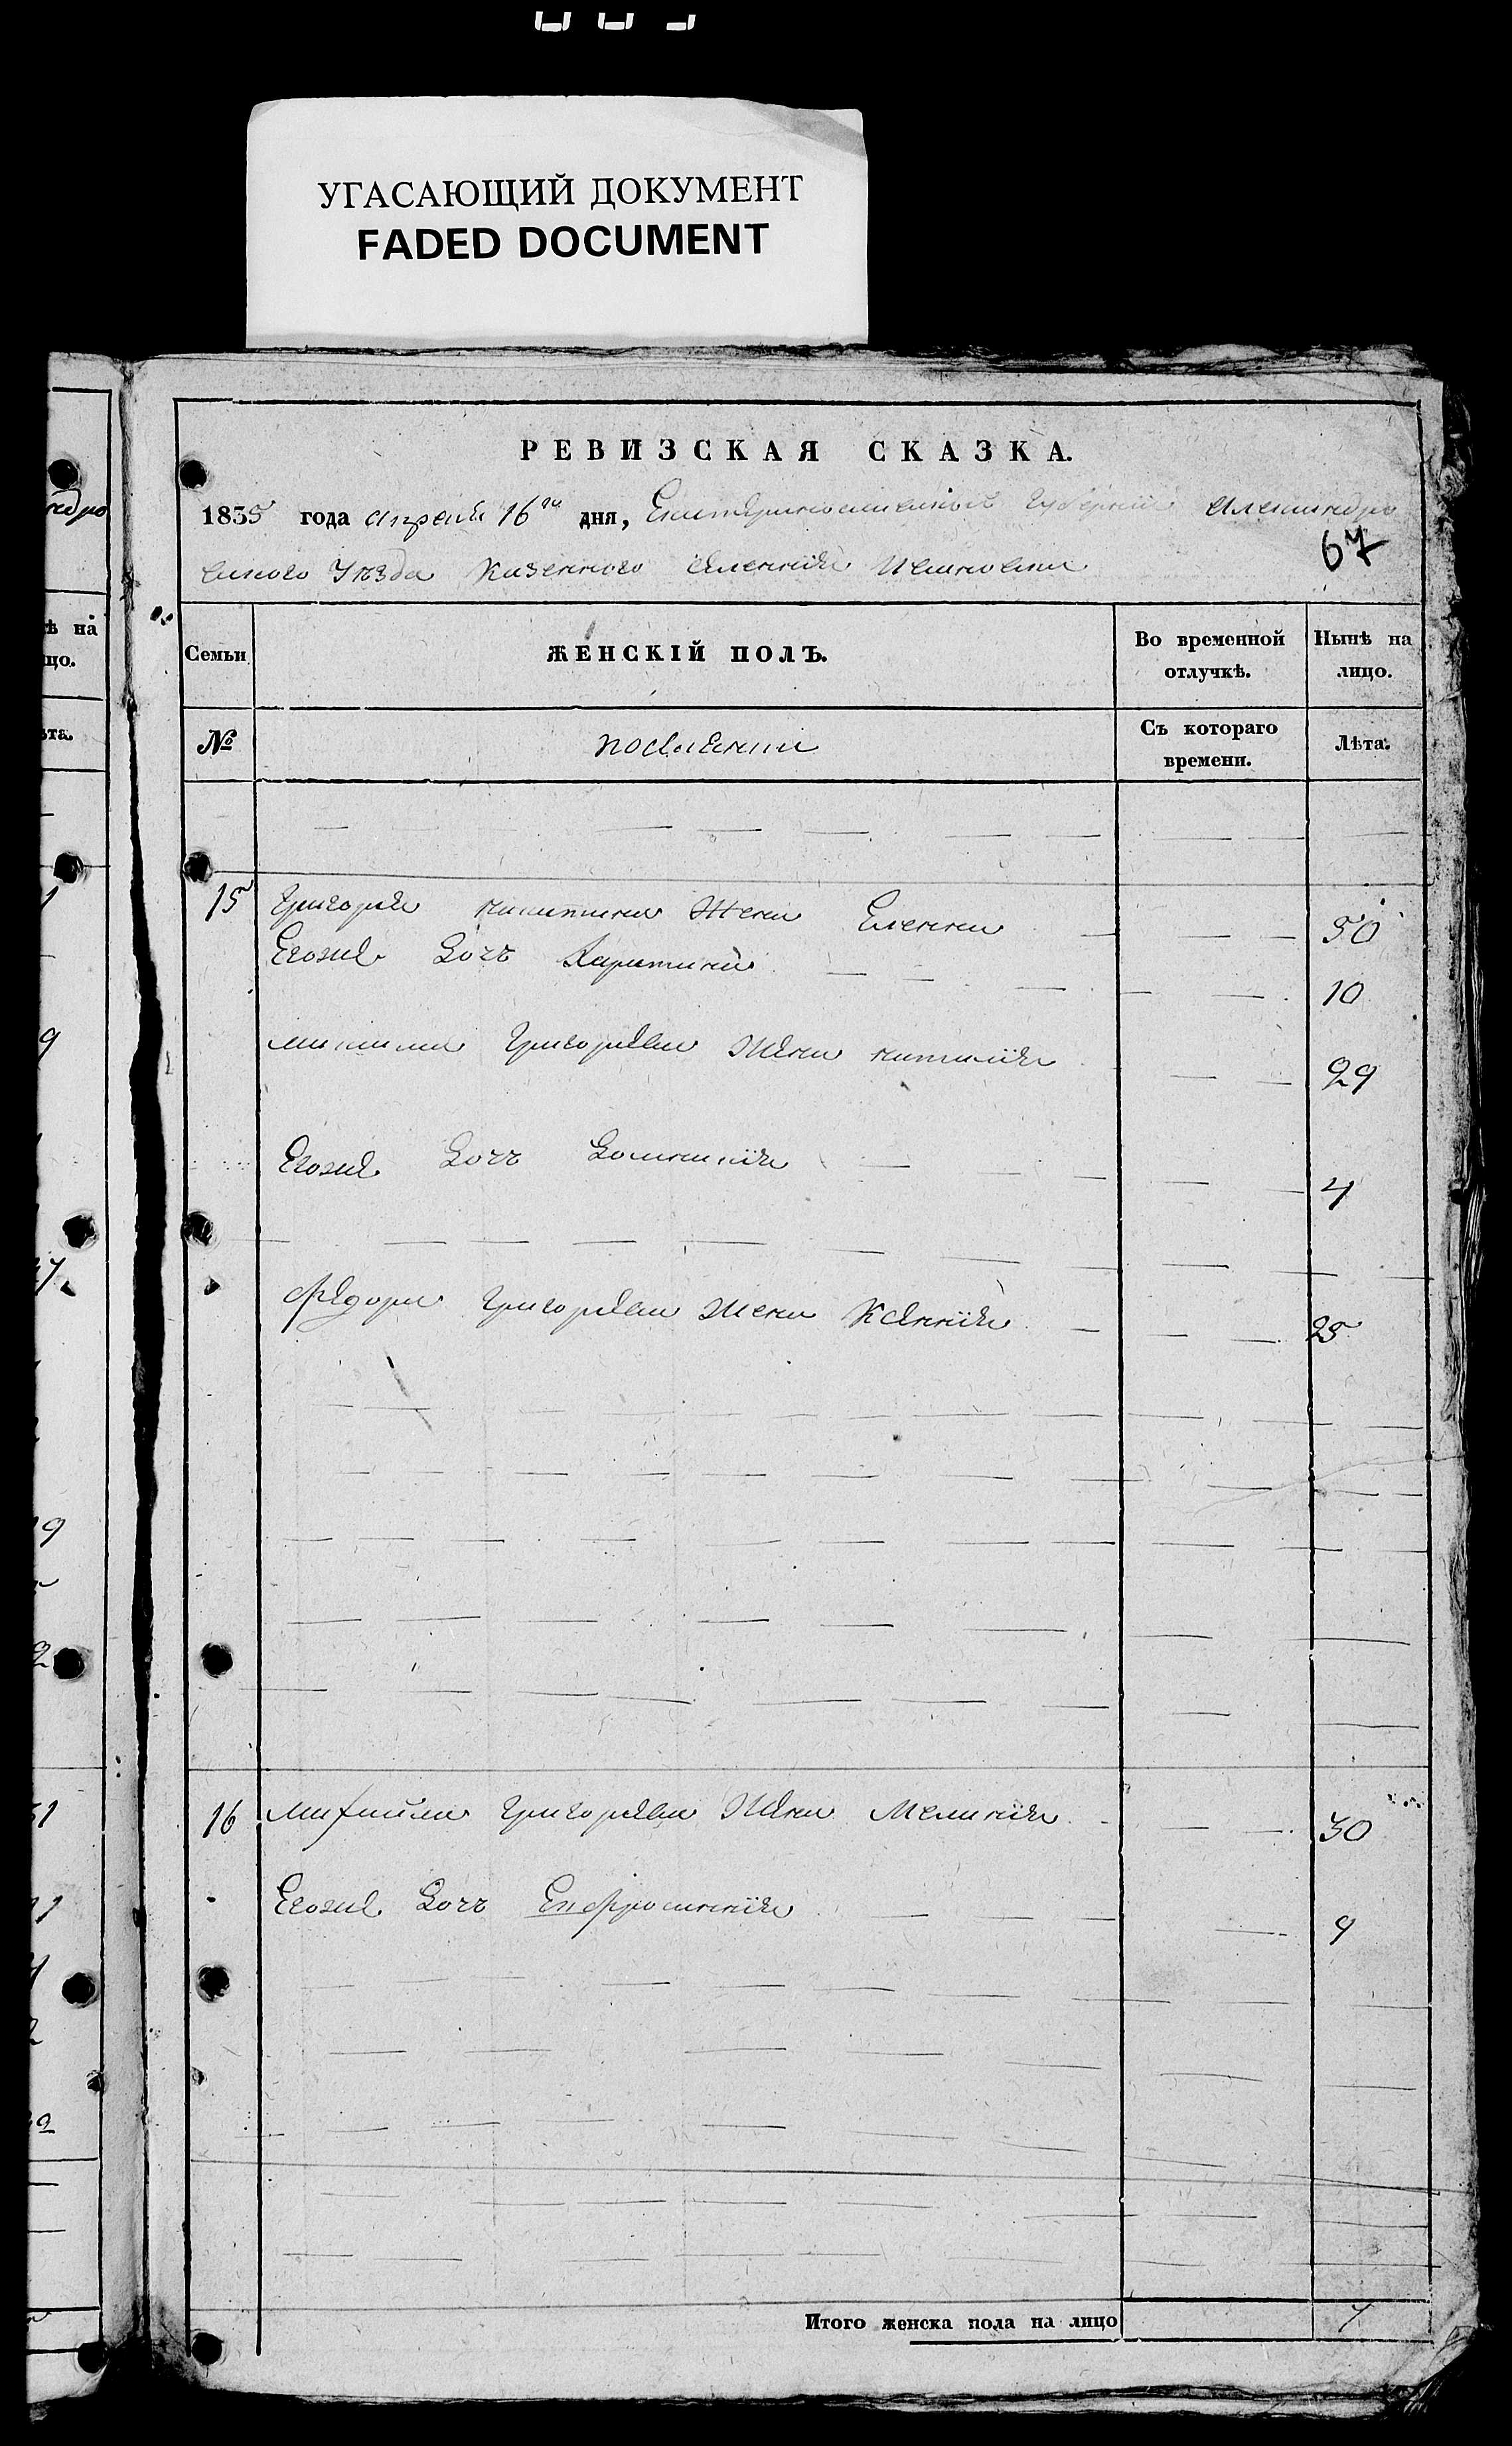 УГАСАЮЩИЙ ДОКУМЕНТ
FADED DOCUMENT
РЕВИЗСКАЯ СКАЗКА.
1835 года апреля 16го дня, Екатеринославской Губернии Александро
вского Уѣзда казенного селения
67
Семьи
ЖЕНСКІЙ ПОЛЪ.
Во временной отлучкѣ.
Нынѣ на лицо.
№
Съ котораго времени.
Лѣта.
15 Григория Никитина Жена Еленна 50
Егоже Дочь Харитина 10
Максима Григорьева Жена Наталия 29
Егоже Дочь Домникия 4
Федора Григорьева жена Ксения 25
16 Михайла Григорьева Жена Мелания 30
Егоже Дочь Епфросинния 9
Итого женска пола на лицо 7